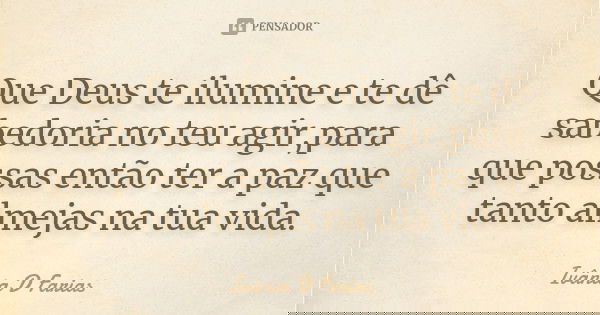 PENSADOR
Que Deus te ilumine e te dê
sabedoria no teu agir, para
que possas então ter a paz que
tanto almejas na tua vida.
Ivânia D.Farias